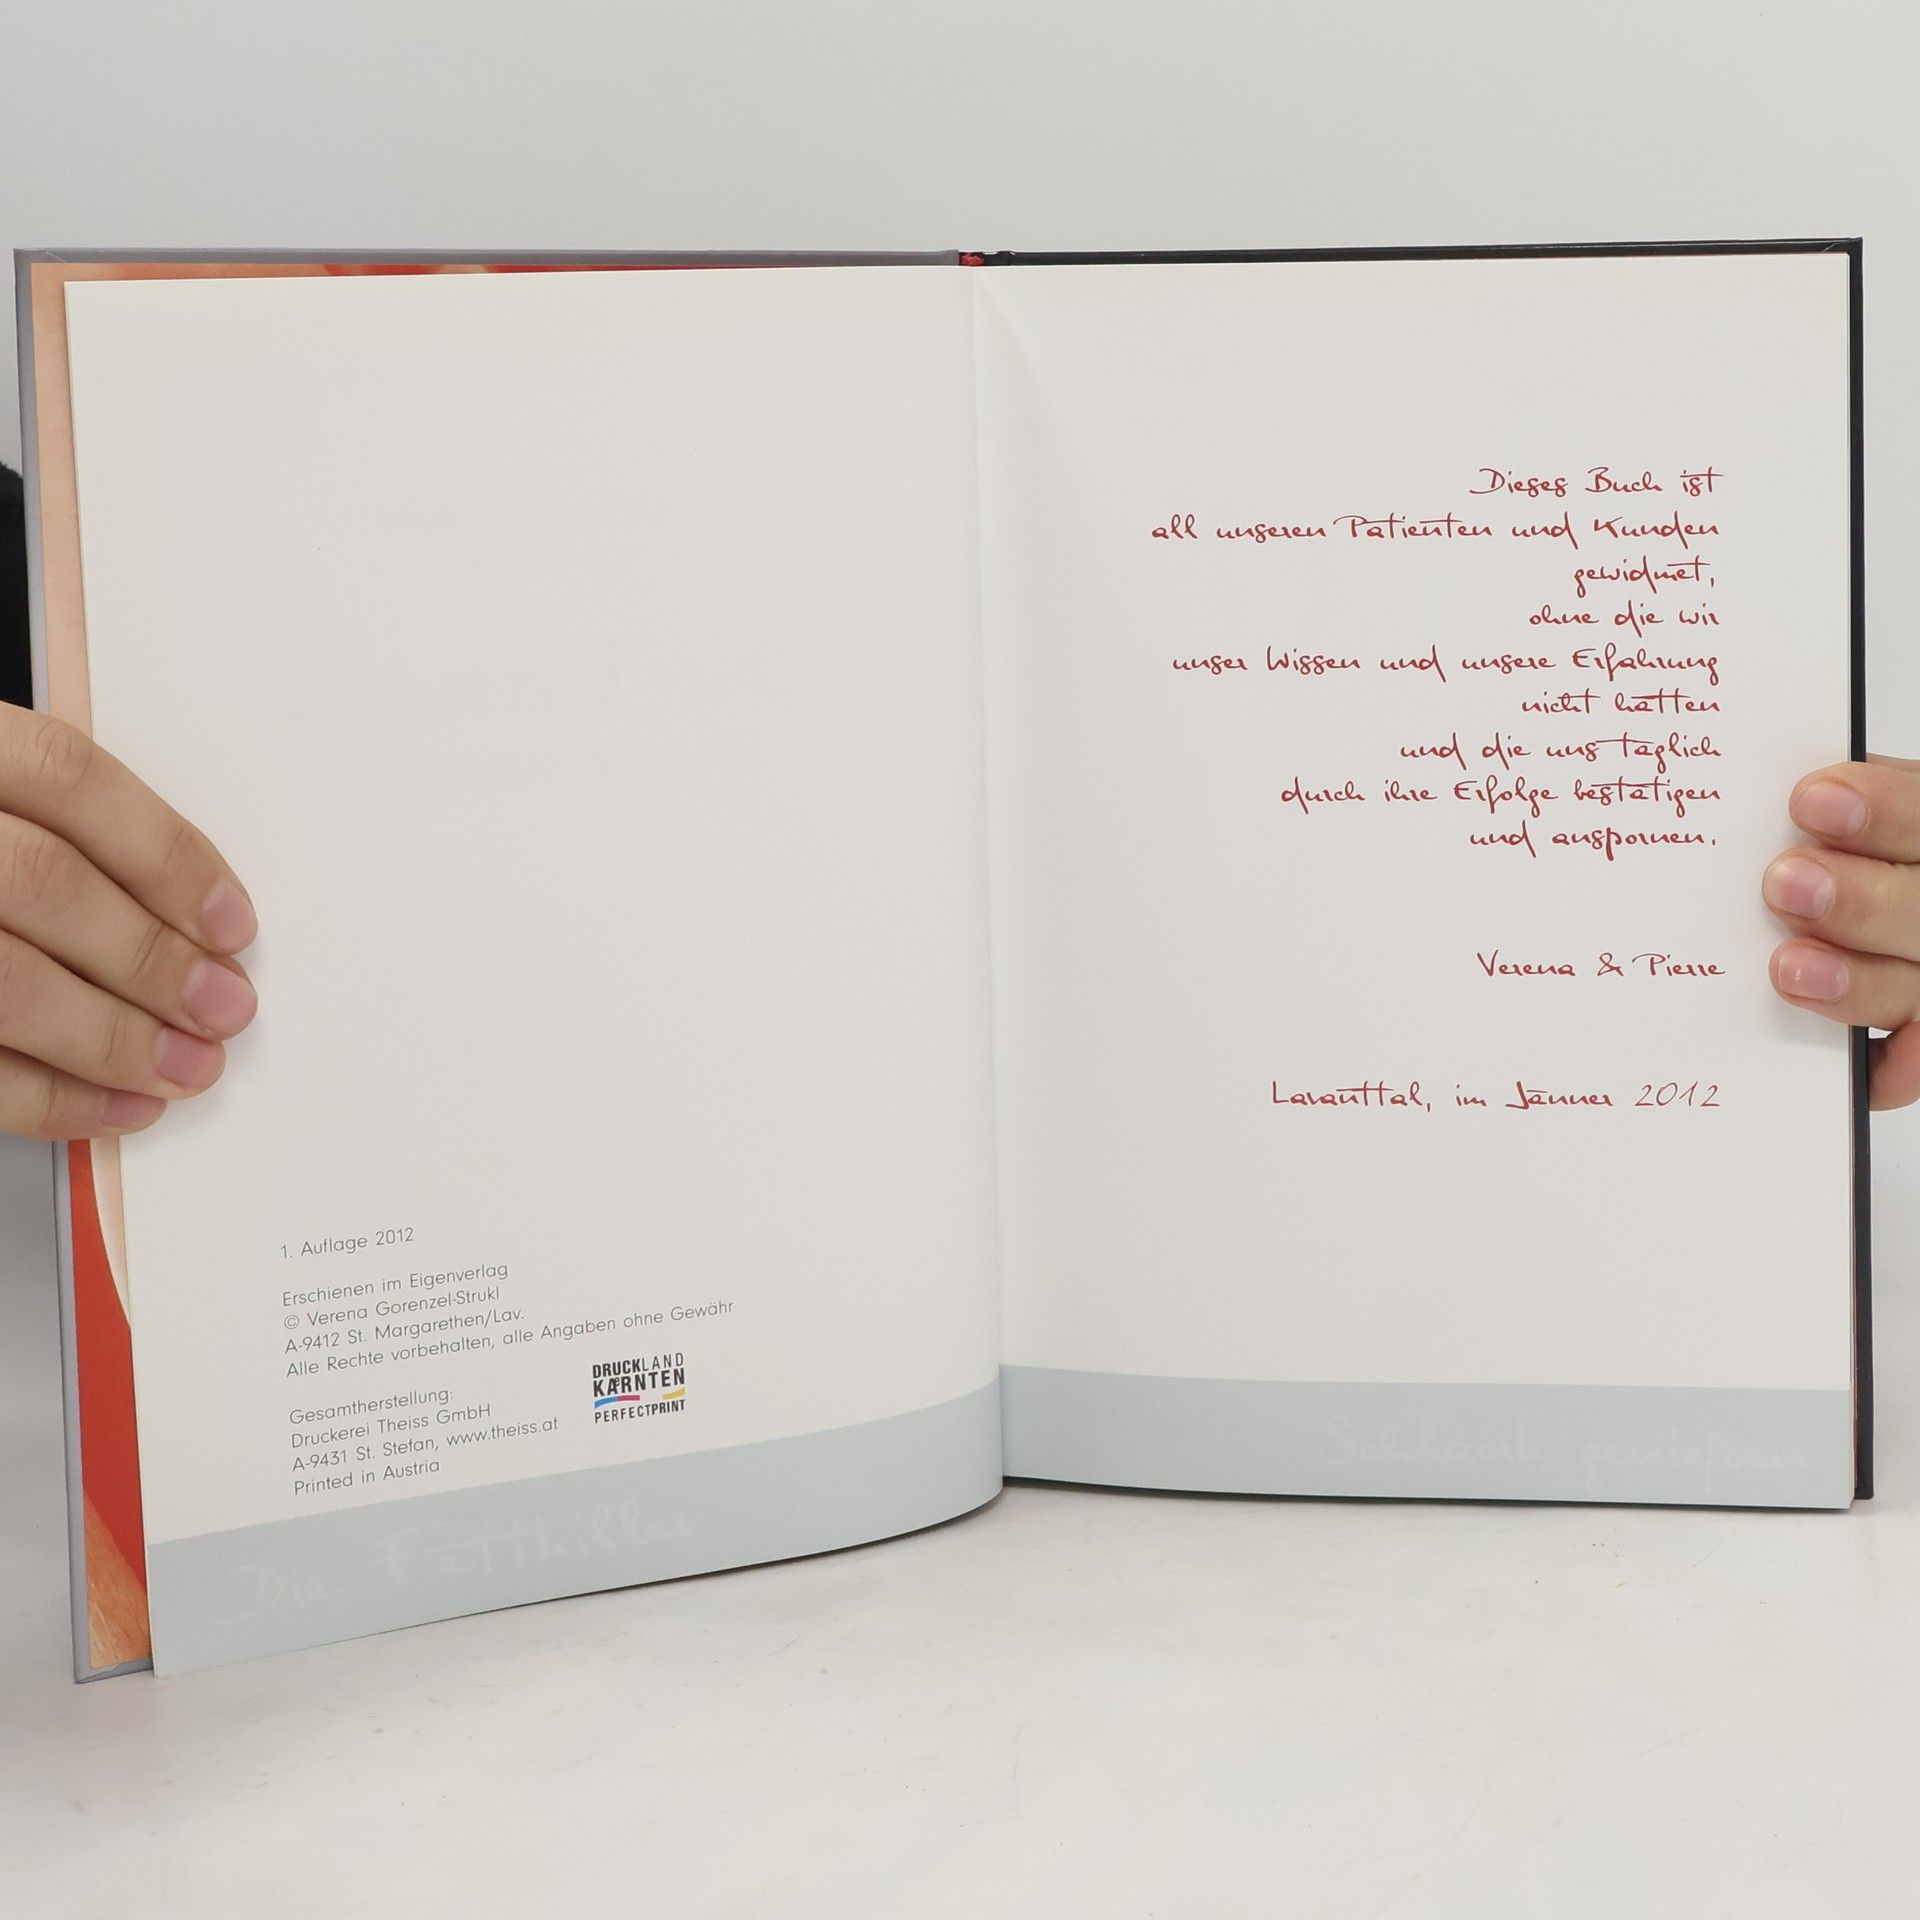 1. Auflage 2012
Erschienen im Eigenverlag
© Verena Gorenzel-Strukl
A-9412 St. Margarethen/Lav.
Alle Rechte vorbehalten, alle Angaben ohne Gewähr
Gesamtherstellung:
Druckerei Theiss GmbH
A-9431 St. Stefan, www.theiss.at
Printed in Austria
DRUCKLAND
KÄRNTEN
PERFECTPRINT
Die Fettkiller
Dieses Buch ist
all unseren Patienten und Kunden
gewidmet,
ohne die wir
unser Wissen und unsere Erfahrung
nicht hätten
und die uns täglich
durch ihre Erfolge bestätigen
und anspornen.
Verena & Pierre
Lavanttal, im Jänner 2012
Schlank genießen